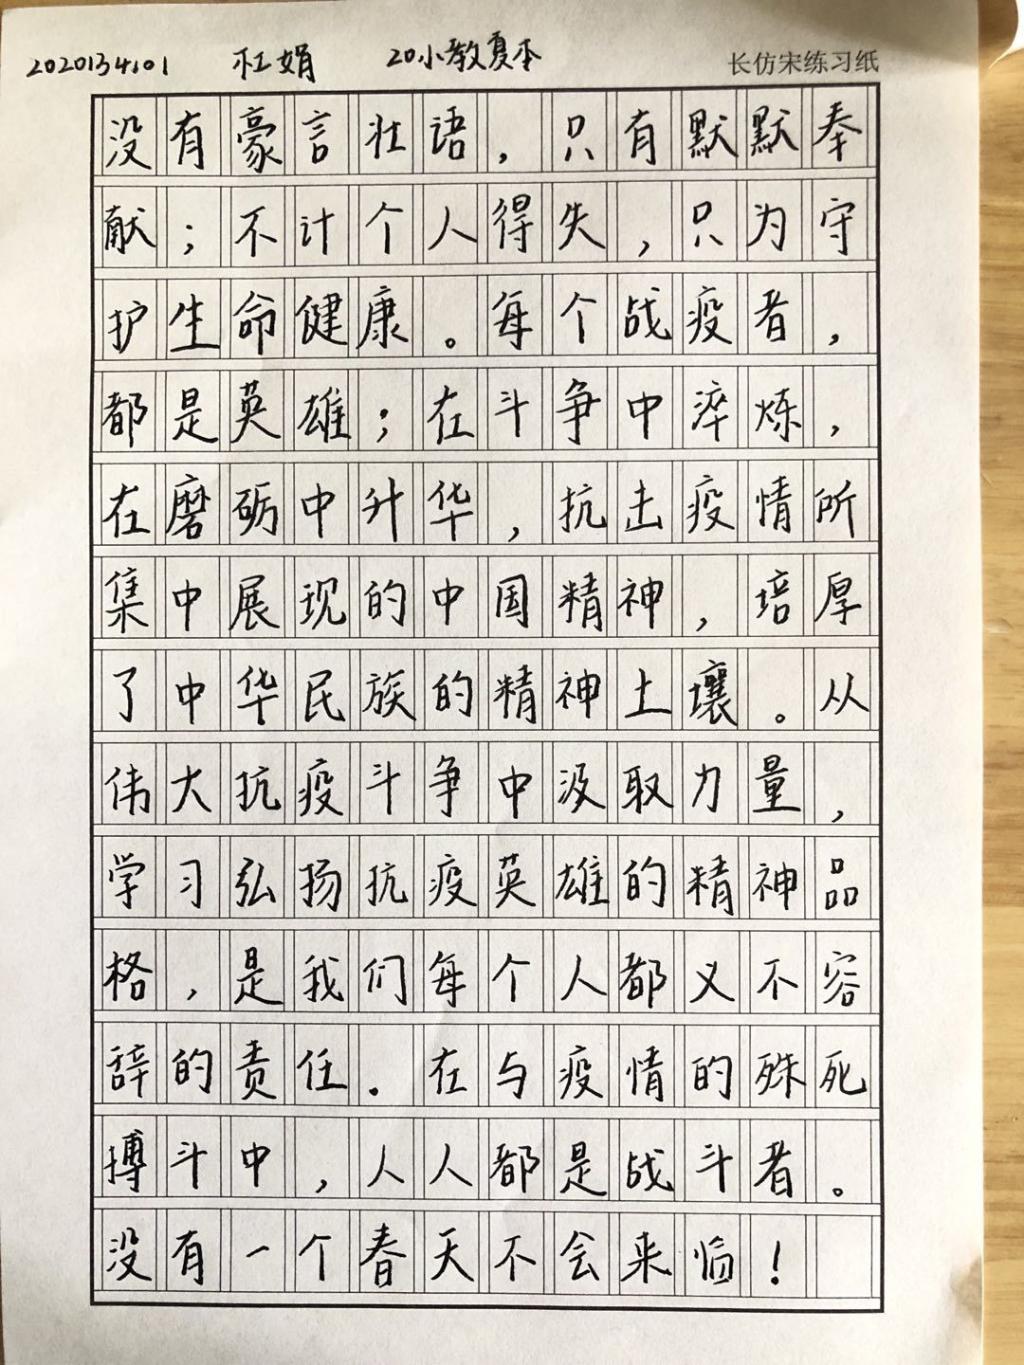 2020134101 杜娟 20小教夏本 长仿宋练习纸
没有豪言壮语，只有默默奉
献；不计个人得失，只为守
护生命健康。每个战疫者，
都是英雄；在斗争中淬炼，
在磨砺中升华，抗击疫情所
集中展现的中国精神，培厚
了中华民族的精神土壤。从
伟大抗疫斗争中汲取力量，
学习弘扬抗疫英雄的精神品
格，是我们每个人都义不容
辞的责任．在与疫情的殊死
搏斗中，人人都是战斗者。
没有一个春天不会来临！